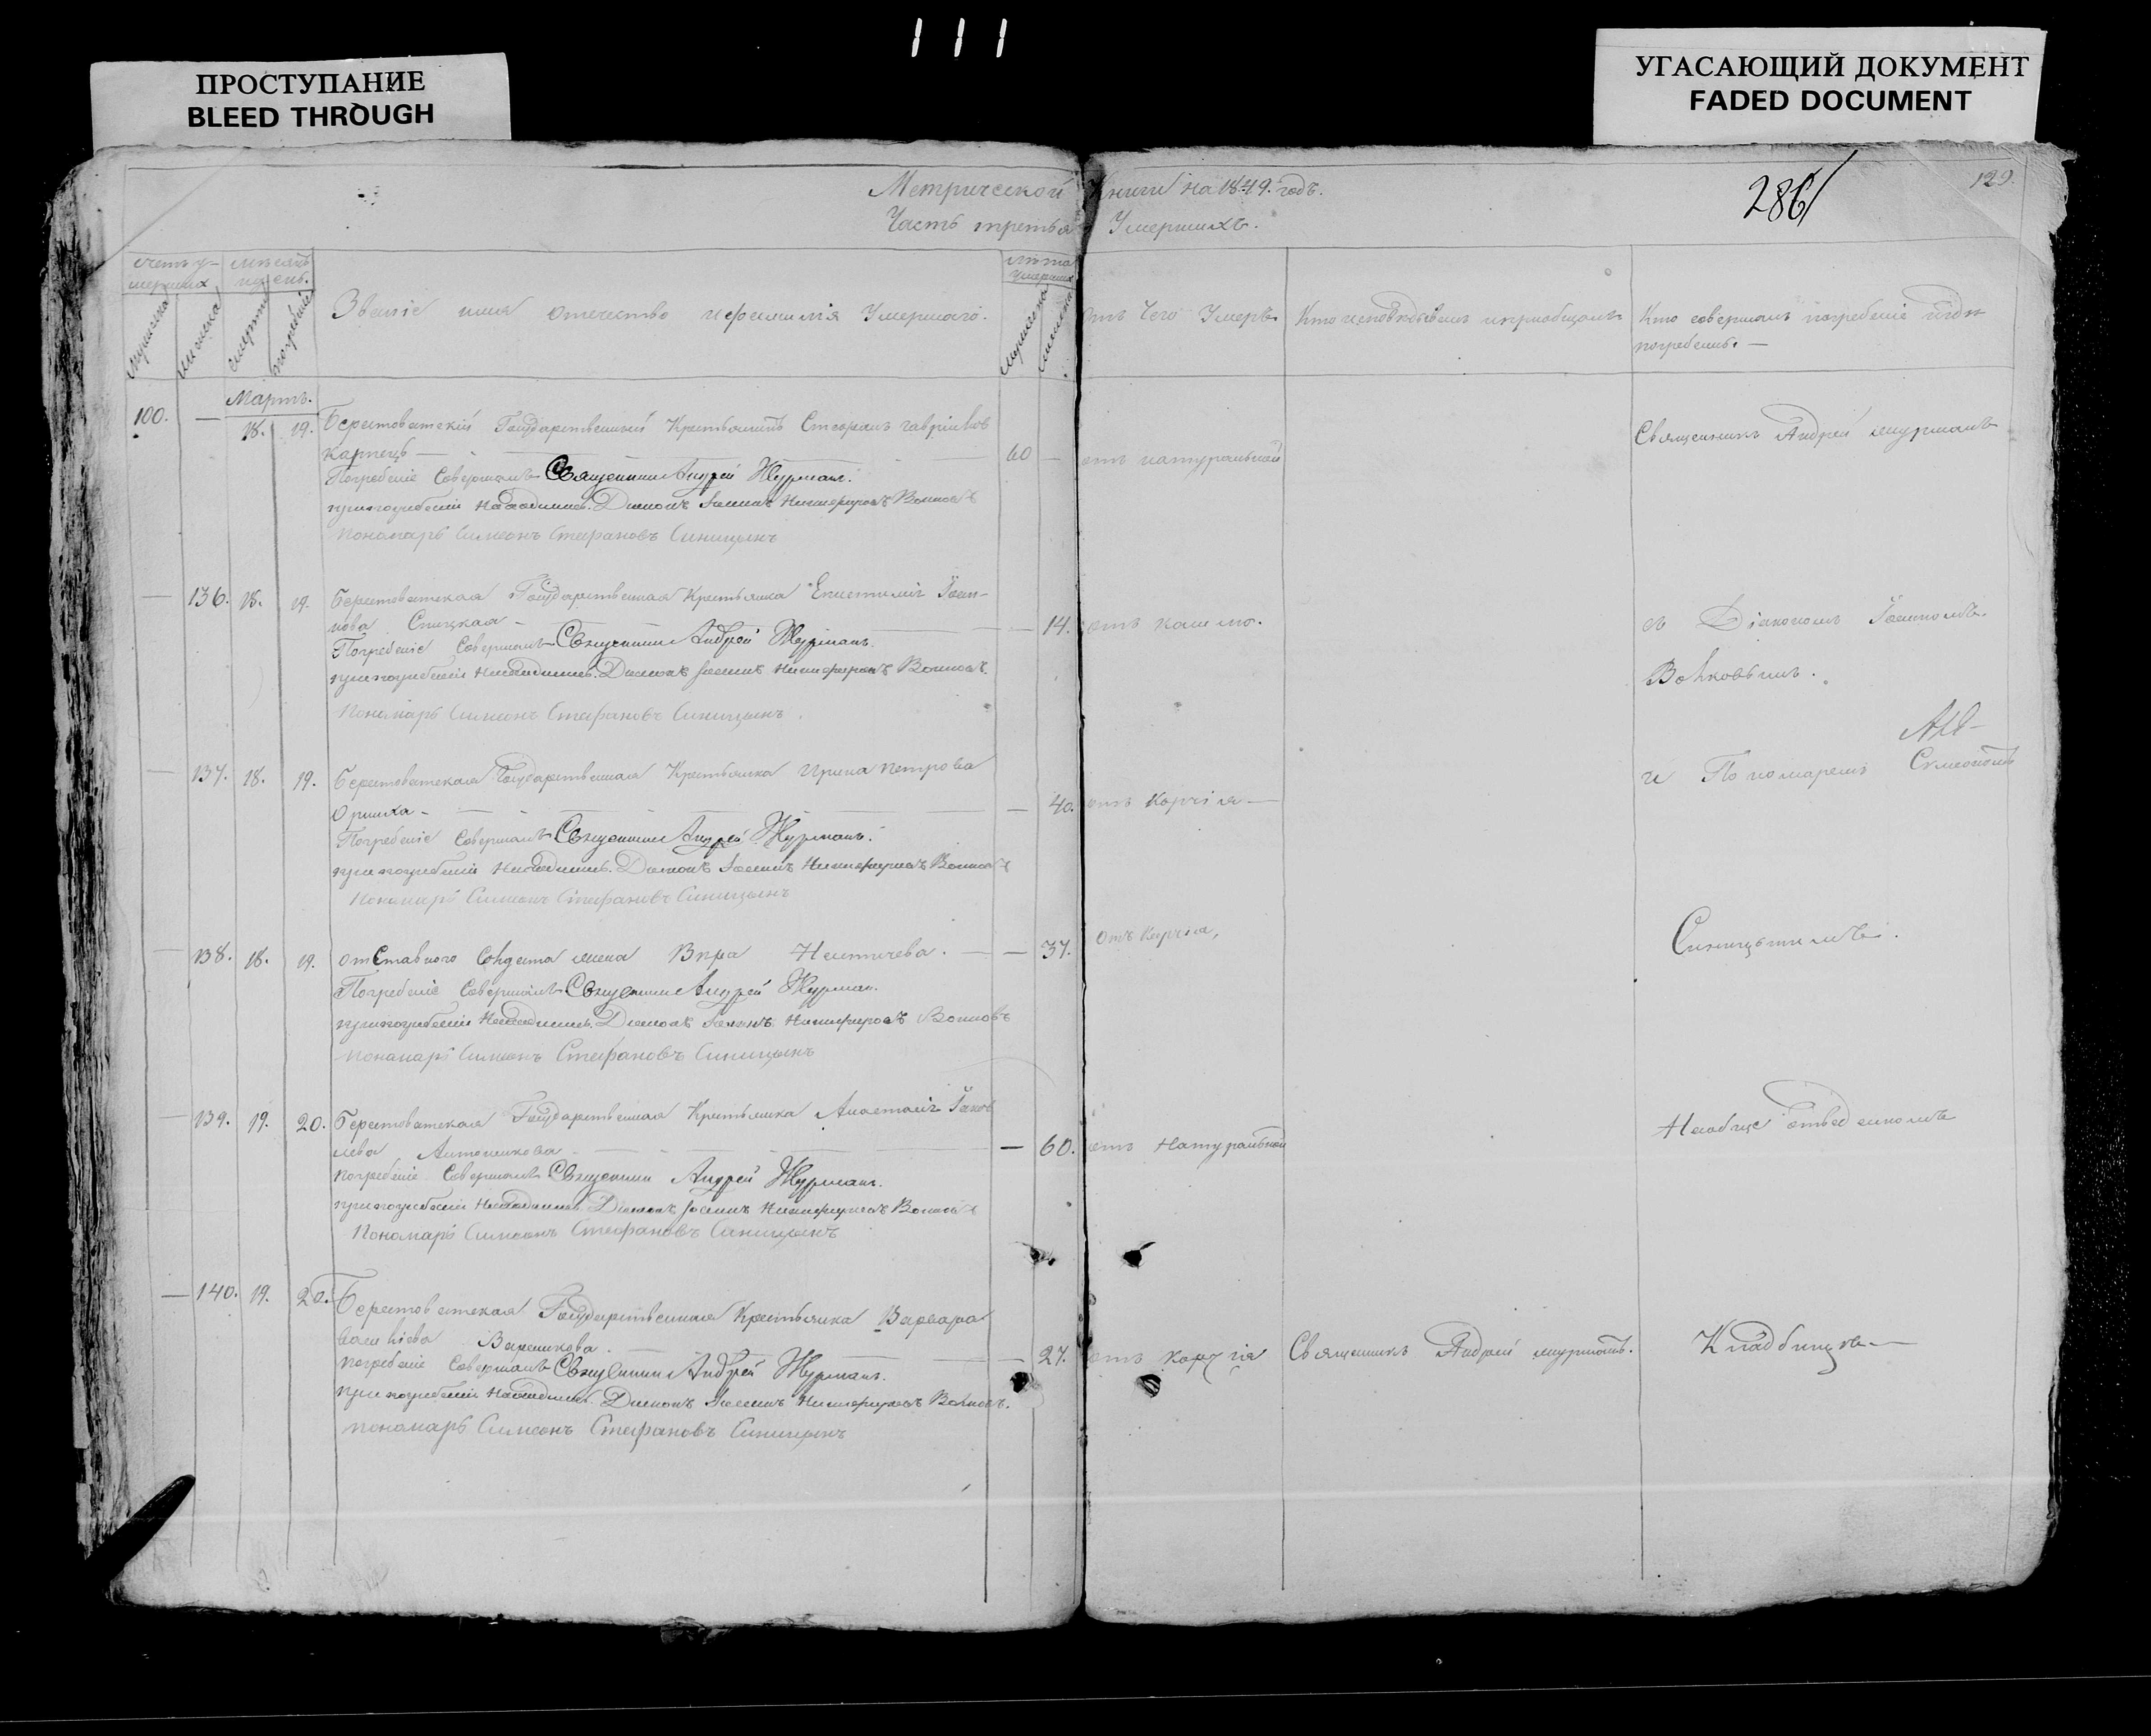 111
ПРОСТУПАНИЕ
BLEED THROUGH
УГАСАЮЩИЙ ДОКУМЕНТ
FADED DOCUMENT
Метрической Книги на 1849. годъ.
286
129.
Часть третья Умершихъ.
счетъ у-
мершихъ
месяцъ
и день.
лета
умершихъ
мужеска
женска
смерти
погребения
Званіе имя отечество и фамилія Умершаго.
мужеска
женска
отъ Чего Умеръ
Кто исповедывалъ и приобщалъ
Кто совершалъ погребеніе и где
погребены.
Мартъ.
100. — 18. 19. Берестоватскій Государственный Крестьянинъ Стефанъ гавріиловъ
Карпецъ — 60 — отъ натуральной
Священникъ Андрей журманъ
Погребеніе Совершалъ Священникъ Андрей Журманъ.
при погребеніи находились. Диаконъ Іоаннъ Никифоровъ Волковъ
Пономарь Симеонъ Стефановъ Синицынъ
— 136. 18. 19. Берестоватская Государственная Крестьянка Епистимія Іоан-
нова Спицкая — — 14. отъ кашлю.
съ Діакономъ Іоанномъ
Погребеніе Совершалъ Священникъ Андрей Журманъ.
при погребеніи находились. Диаконъ Іоаннъ Никифоровъ Волковъ.
Волковымъ.
Пономарь Симеонъ Стефановъ Синицынъ.
— 137. 18. 19. Берестоватская Государственная Крестьянка Ирина петрова
и Пономаремъ Симеономъ
— 40. отъ Корчія —
Погребеніе Совершалъ Священникъ Андрей Журманъ.
при погребеніи находились. Диаконъ Іоаннъ Никифоровъ Волковъ
Пономарь Симеонъ Стефановъ Синицынъ
— 138. 18. 19. отставного Солдата жена — 37. отъ Корчія,
Синицынымъ.
Погребеніе Совершалъ Священникъ Андрей Журман.
при погребеніи находились. Диаконъ Іоаннъ Никифоровъ Волковъ
пономарь Симеонъ Стефановъ Синицынъ
— 139. 19. 20. Берестоватская Государственная Крестьянка Анастасія Іаков
лева Антоненкова — — 60. отъ Натуральной
На обще отведенномъ
погребеніе Совершалъ Священникъ Андрей Журманъ.
при погребеніи находились. Диаконъ Іоаннъ Никифоровъ Волковъ
Пономарь Симеонъ Стефановъ Синицынъ
— 140. 19. 20. Берестоватская Государственная Крестьянка Варвара
— 27. отъ корчія Священникъ Андрей журманъ. Кладбище —
погребеніе Совершалъ Священникъ Андрей Журманъ.
при погребеніи находились. Диаконъ Іоаннъ Никифоровъ Волковъ.
пономарь Симеонъ Стефановъ Синицынъ